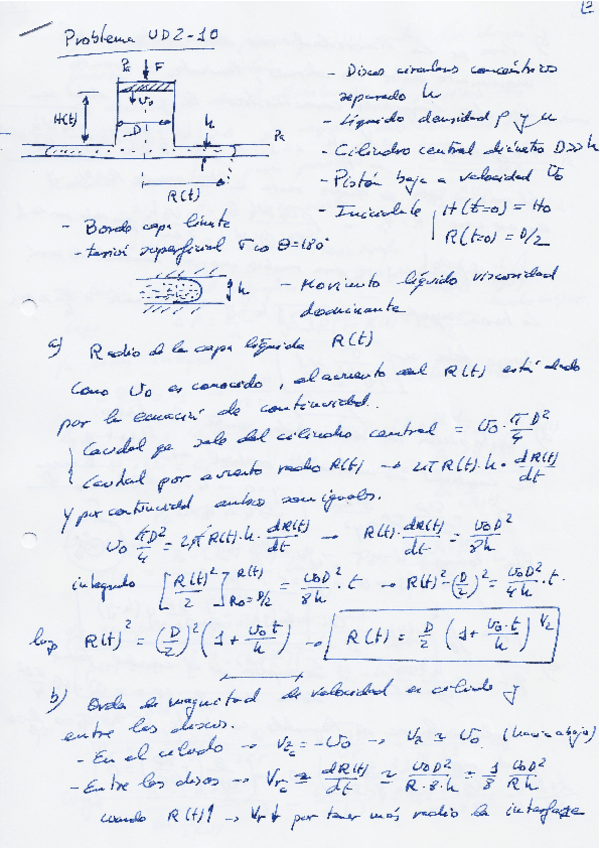 Problema UD2-10
Pa F
U0
H(t)
D
h
Pa
R(t)
- Discos circulares concéntricos
separados h
- Líquido densidad ρ y μ
- Cilindro central diámetro D>>h
- Pistón baja a velocidad U0
- Inicialmente H(t=0) = H0
R(t=0) = D/2
- Borde capa líquida
- tensión superficial σ θ=180°
h
- Movimiento líquido viscosidad
dominante
a) Radio de la capa líquida R(t)
Como U0 es conocido, el aumento del R(t) está dado
por la ecuación de continuidad.
Caudal que sale del cilindro central = U0 · πD²/4
Caudal por aumento radio R(t) → 2πR(t)·h·dR(t)/dt
Y por continuidad ambos son iguales.
U0 πD²/4 = 2πR(t)·h·dR(t)/dt → R(t)·dR(t)/dt = U0D²/8h
integrando [R(t)²/2] R(t) R0=D/2 = U0D²/8h · t → R(t)² - (D/2)² = U0D²/4h · t.
luego R(t)² = (D/2)² (1 + U0 t/h) → R(t) = D/2 (1 + U0·t/h)^1/2
b) Orden de magnitud de velocidad en cilindro y
entre los discos.
- En el cilindro → Vzc = -U0 → Vz ≃ U0 (hacia abajo)
- Entre los discos → Vrc ≃ dR(t)/dt ≃ U0D²/R·8·h = 1/8 U0D²/Rh
cuando R(t)↑ → Vr↓ por tener más radio la interfase